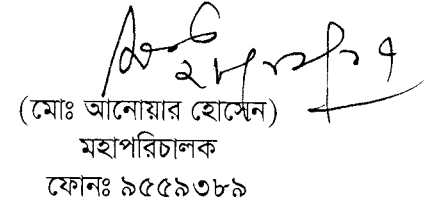 (মোঃ আনোয়ার হোসেন)
মহাপরিচালক
ফোনঃ ৯৫৫৯৩৮৯